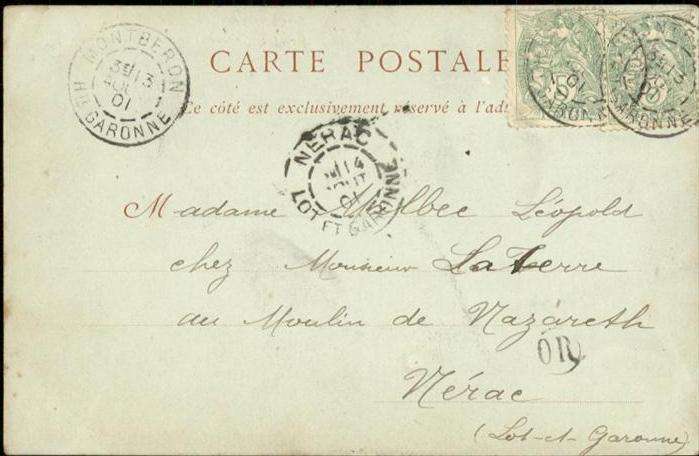 CARTE POSTALE
Ce côté est exclusivement réservé à l'ad
MONTBERON
3E 13
AOUT
01
HTE GARONNE
NERAC
14
AOUT
01
LOT ET GARONNE
Madame Léopold
chez Monsieur Laterre
au Moulin de Nazareth
OR
Nérac
(Lot-et-Garonne)
3E 13
01
GARONNE
13
GARONNE